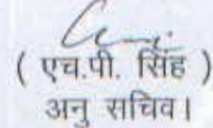 ( एच.पी. सिंह )
अनु सचिव।